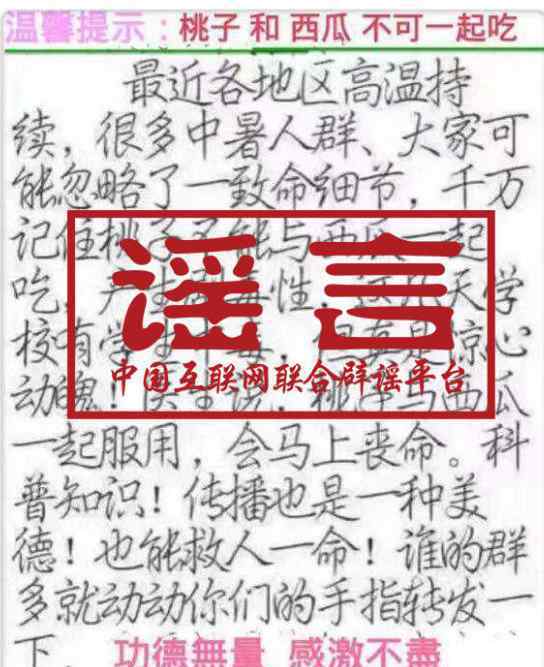 温馨提示：桃子 和 西瓜 不可一起吃
最近各地区高温持
续，很多中暑人群、大家可
能忽略了一致命细节，千万
记住桃子不能与西瓜一起
吃，产生剧毒性，这几天学
校有学生中毒，但真是惊心
动魄！医生说：桃子与西瓜
一起服用，会马上丧命。科
普知识！传播也是一种美
德！也能救人一命！谁的群
多就动动你们的手指转发一
下．
功德無量 感激不盡
谣言
中国互联网联合辟谣平台